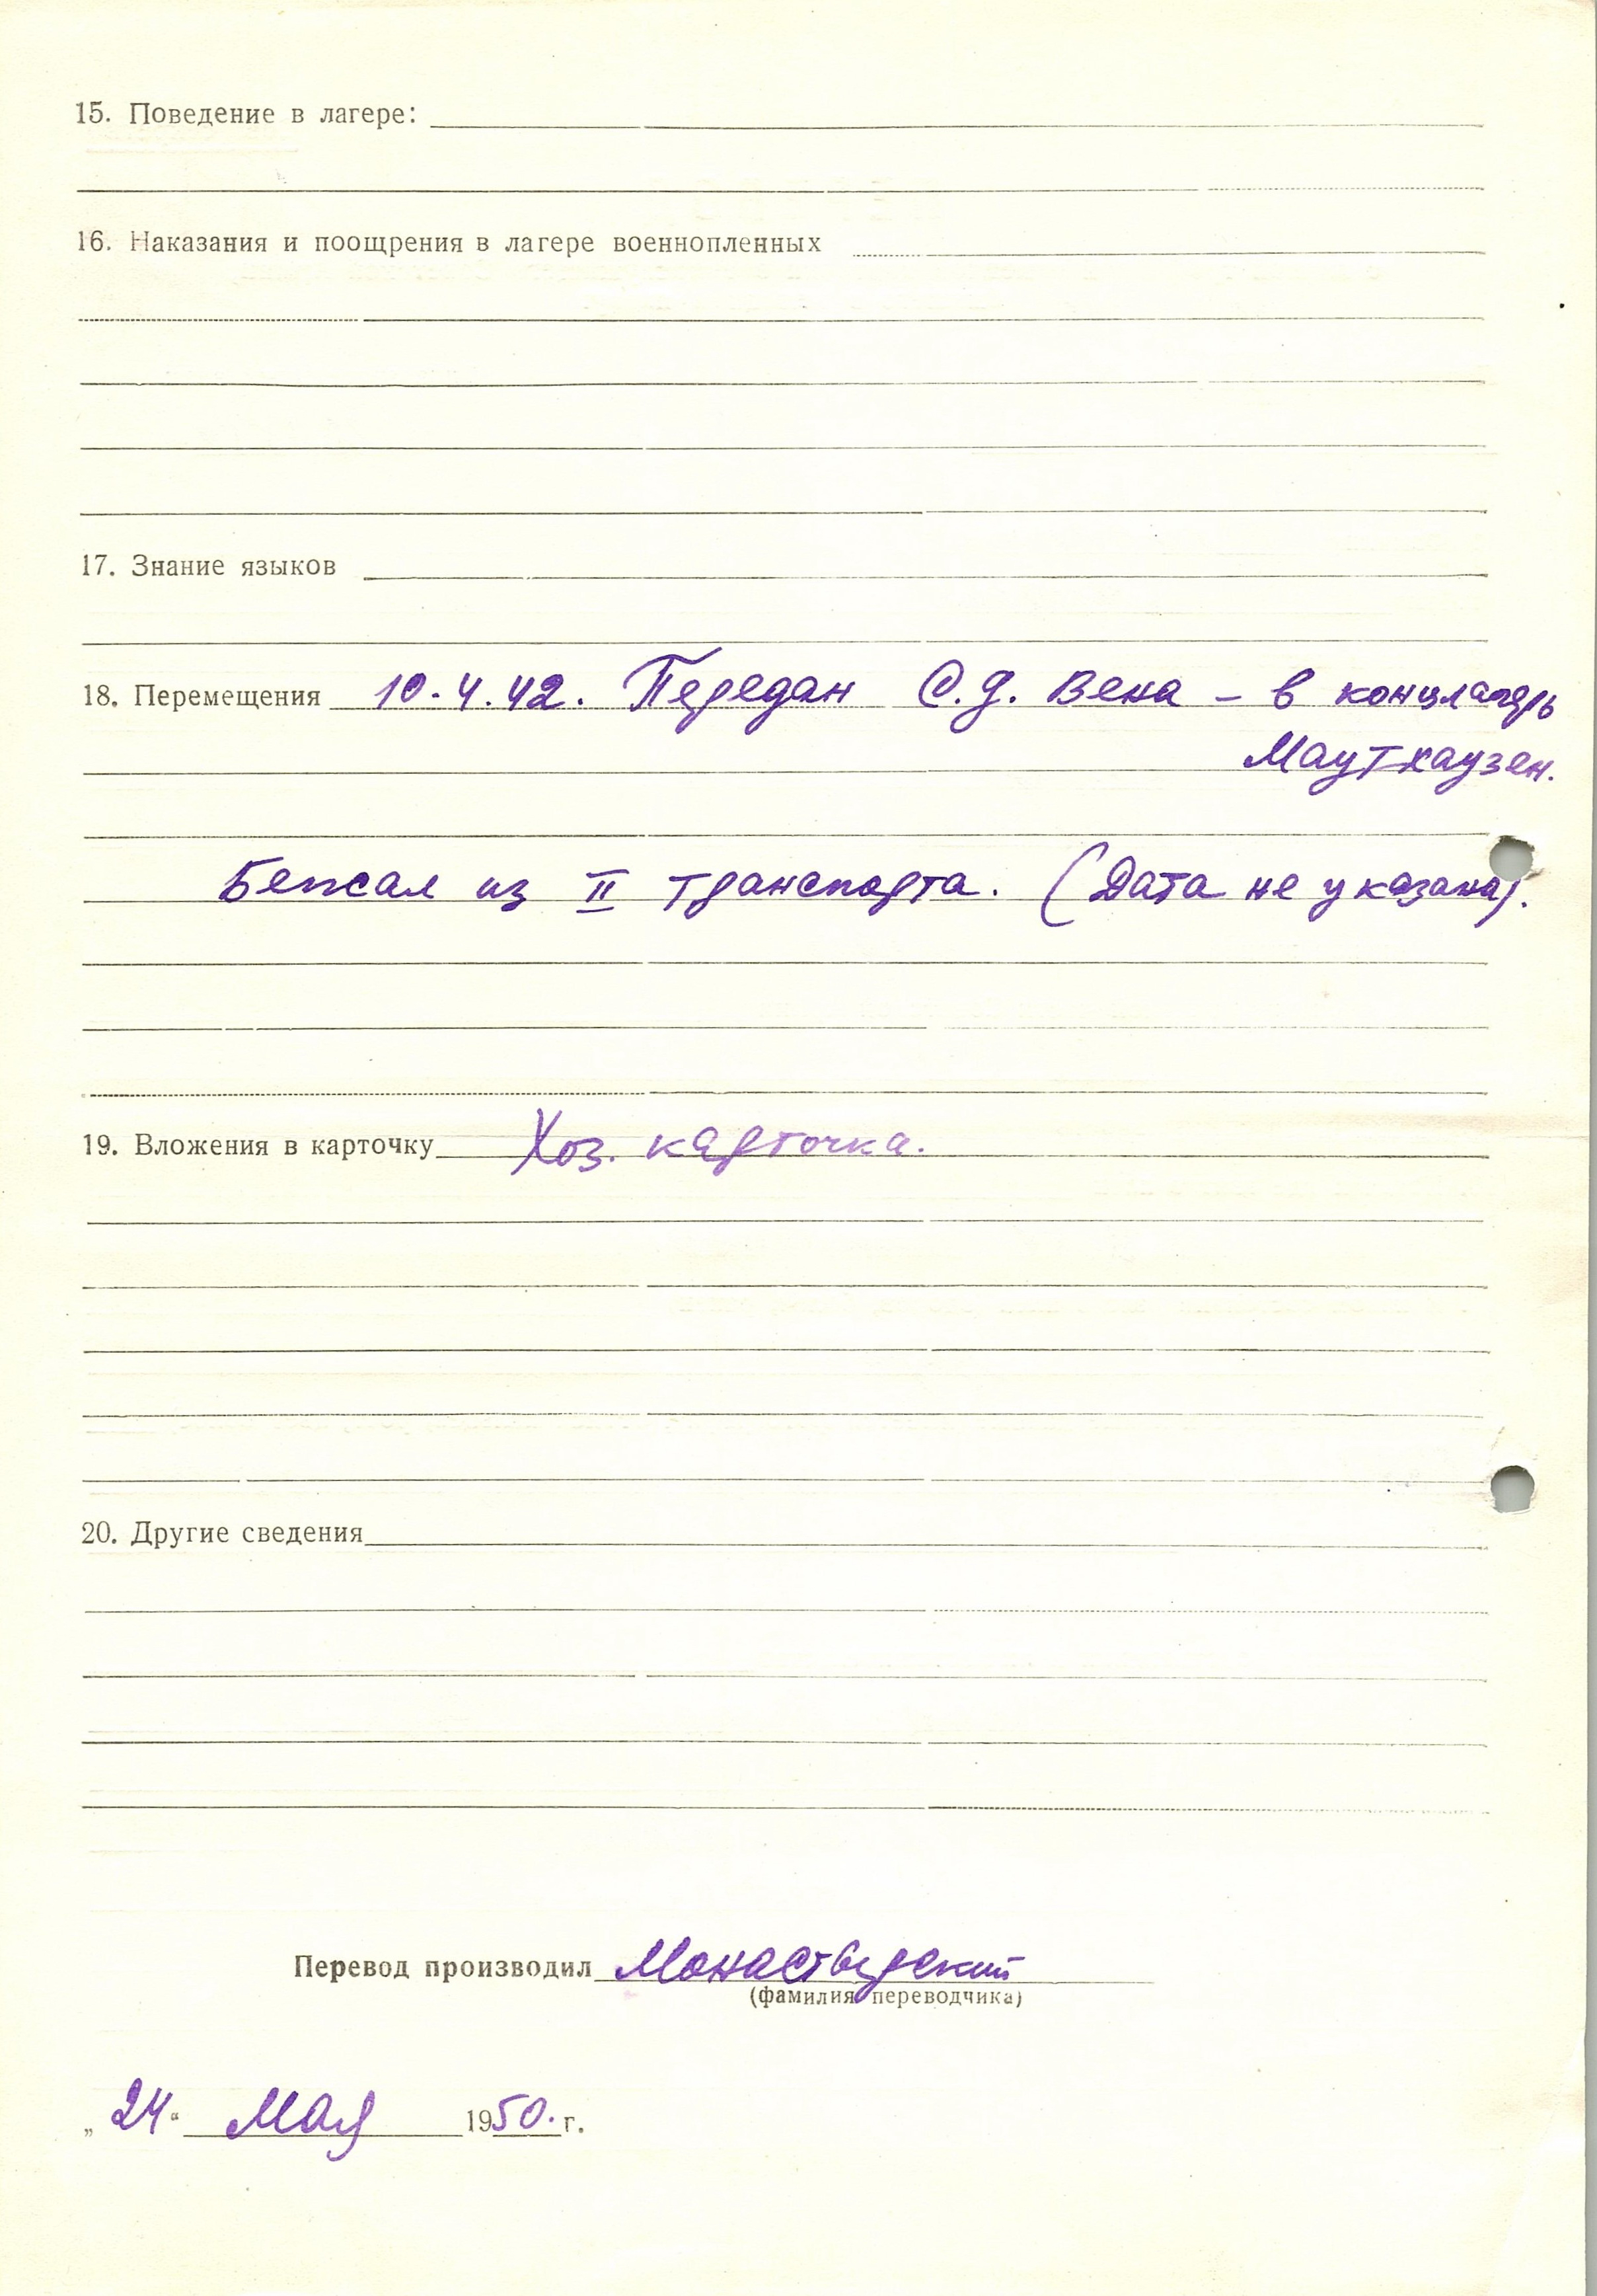 15. Поведение в лагере:
16. Наказания и поощрения в лагере военнопленных
17. Знание языков
18. Перемещения 10.4.42. Передан С.Д. Вена – в концлагерь
Маутхаузен.
Бежал из II транспорта. (Дата не указана).
19. Вложения в карточку Хоз. карточка.
20. Другие сведения
Перевод производил Монастырский
(фамилия переводчика)
„24“ Мая 1950. г.